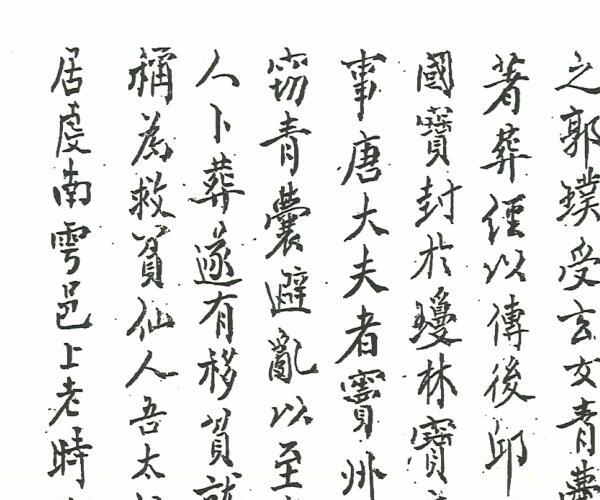 之郭璞受玄女青囊
著葬經以傳後邱
國寶封於瓊林寶
事唐大夫者竇州
窃青囊避亂以至
人卜葬遂有移貧就
稱為救貧仙人吾太
居虔南雩邑上老時